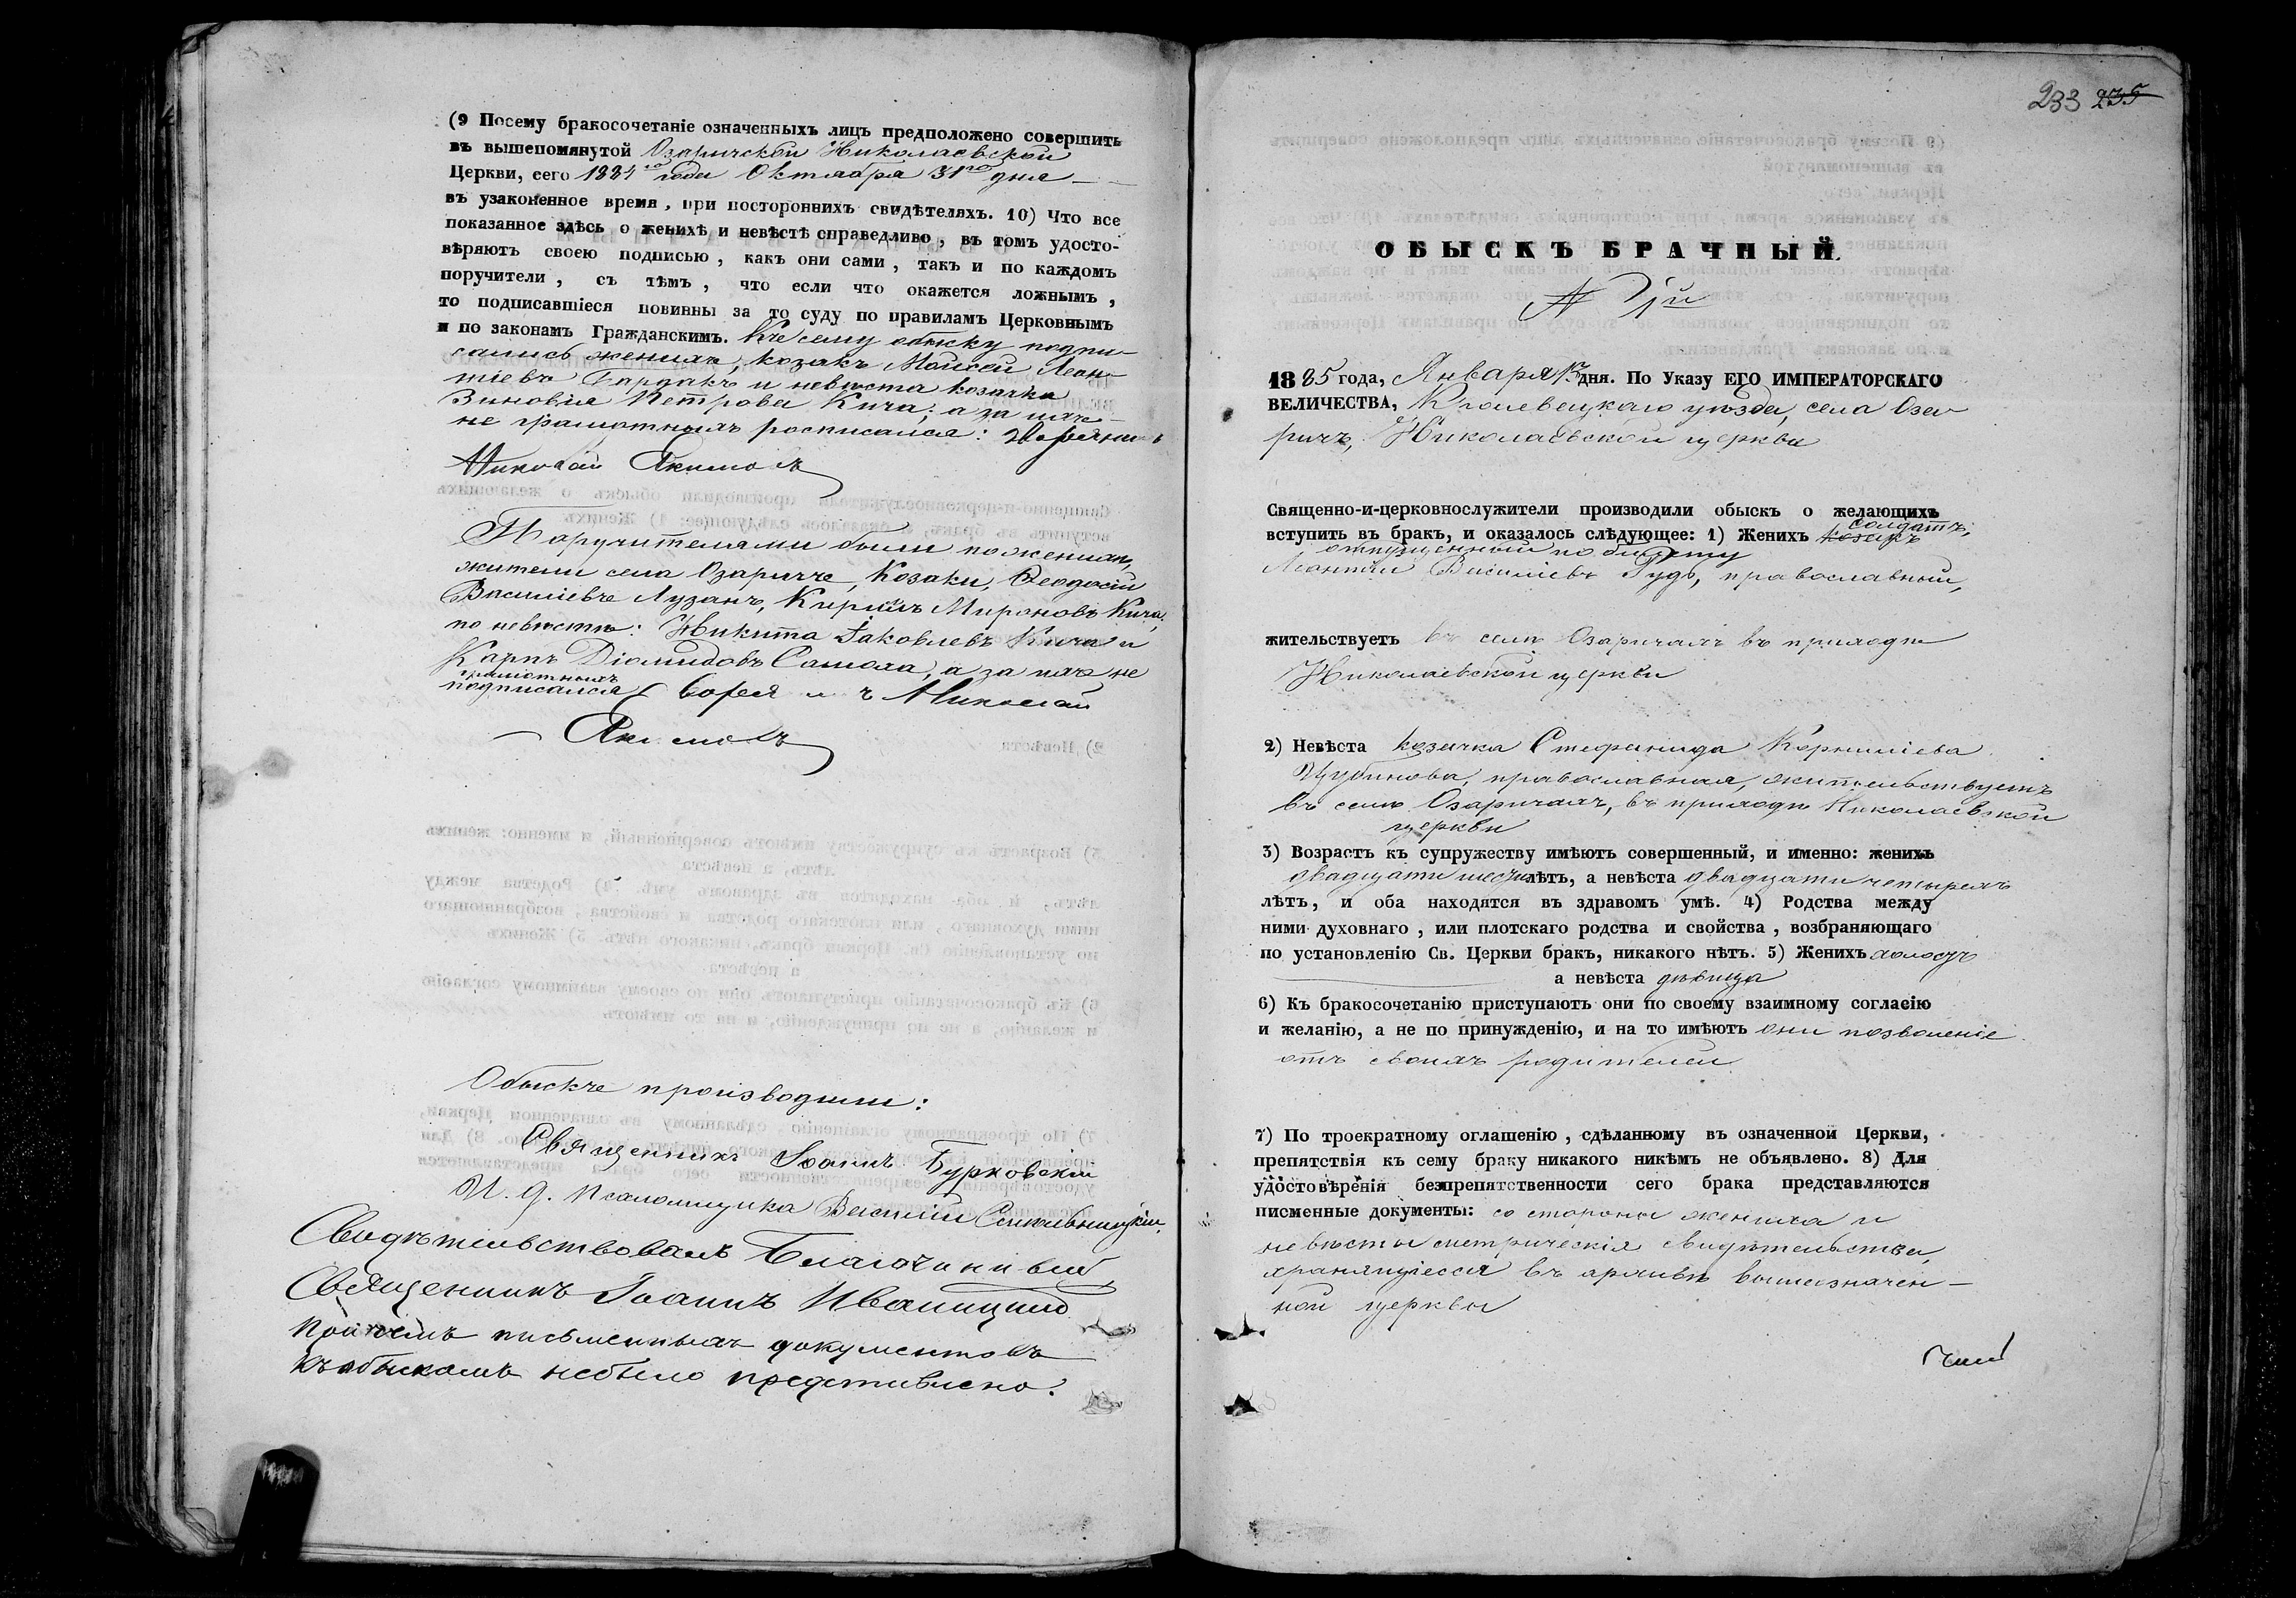 (9 Посему бракосочетаніе означенныхъ лицъ предположено совершить
въ вышепомянутой Озаричской Николаевской
Церкви, сего 1884го года Октября 31го дня
въ узаконенное время, при постороннихъ свидѣтеляхъ. 10) Что все
показанное здѣсь о женихѣ и невѣстѣ справедливо, въ томъ удосто-
вѣряютъ своею подписью, какъ они сами, такъ и по каждомъ
поручители, съ тѣмъ, что если что окажется ложнымъ,
то подписавшіеся повинны за то суду по правиламъ Церковнымъ
и по законамъ Гражданскимъ. Къ сему обыску подпи-
сались женихъ, козакъ Мойсей Леон-
тіевъ и невѣста козачка
Зиновія Петрова Кича; а за нихъ
не грамотныхъ росписался: Дворянинъ
Николай Якимовъ
Поручителями были по женихѣ,
жители села Озаричъ, Козаки, Феодосій
Василіевъ Лузанъ, Кирилъ Мироновъ Кича;
по невѣстѣ: Никита Іаковлевъ Кича и
Карпъ Діомидовъ а за нихъ не
грамотныхъ
подписался Дворянинъ Николай
Якимовъ
Обыскъ производили:
Священникъ Іоаннъ Бурковскій
И. д. Псаломщика Василій
Свидѣтельствовалъ Благочинный
Священникъ Іоаннъ Иваницкій
Причемъ письменныхъ документовъ
къ обыскамъ небыло представлено.
233 235
ОБЫСКЪ БРАЧНЫЙ.
№ 1й
1885 года, Января дня. По Указу ЕГО ИМПЕРАТОРСКАГО
ВЕЛИЧЕСТВА, Кролевецкаго уѣзда, села Оза-
ричъ, Николаевской церкви
Священно-и-церковнослужители производили обыскъ о желающихъ
солдатъ,
вступить въ бракъ, и оказалось слѣдующее: 1) Женихъ козакъ
отпущенный по билету
Леонтій Василіевъ православный,
жительствуетъ въ селѣ Озаричахъ въ приходѣ
Николаевской церкви
2) Невѣста козачка Стефанида Корниліева
православная, жительствуетъ
въ селѣ Озаричахъ, въ приходѣ Николаевской
церкви
3) Возрастъ къ супружеству имѣютъ совершенный, и именно: женихъ
двадцати шести лѣтъ, а невѣста двадцати четырехъ
лѣтъ, и оба находятся въ здравомъ умѣ. 4) Родства между
ними духовнаго, или плотскаго родства и свойства, возбраняющаго
по установленію Св. Церкви бракъ, никакого нѣтъ. 5) Женихъ холостъ
а невѣста дѣвица
6) Къ бракосочетанію приступаютъ они по своему взаимному согласію
и желанію, а не по принужденію, и на то имѣютъ они позволеніе
отъ своихъ родителей
7) По троекратному оглашенію, сдѣланному въ означенной Церкви,
препятствія къ сему браку никакого никѣмъ не объявлено. 8) Для
удостовѣренія безпрепятственности сего брака представляются
писменные документы: со стороны жениха и
невѣсты метрическія свидѣтельства,
хранящіеся въ архивѣ вышеозначен-
ной церкви